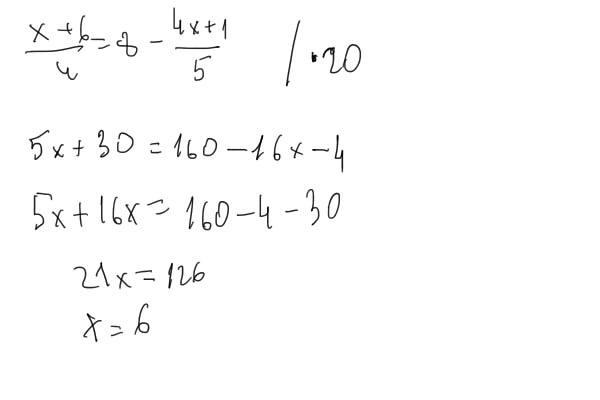 (x+6)/4 = 8 - (4x+1)/5 / ·20
5x+30=160-16x-4
5x+16x=160-4-30
21x=126
x=6